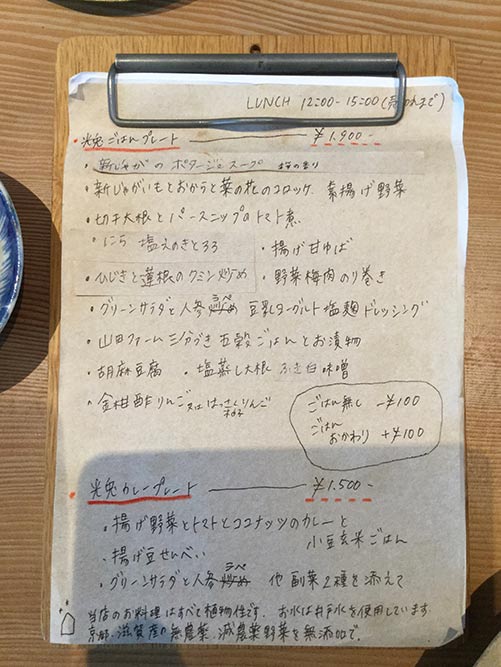 LUNCH 12:00-15:00(売切れまで)
光兎ごはんプレート ¥1,900-
・新じゃがのポタージュスープ 桜の香り
・新じゃがいもとおからと菜の花のコロッケ 素揚げ野菜
・切干大根とパースニップのトマト煮
・にら 塩えのきとろろ ・揚げ甘ゆば
・ひじきと蓮根のクミン炒め ・野菜梅肉のり巻き
・グリーンサラダと人参ラペ 豆乳ヨーグルト塩麹ドレッシング
・山田ファーム三分づき五穀ごはんとお漬物
・胡麻豆腐 ・塩蒸し大根 ふき白味噌
・金柑酢りんご又ははっさくりんご
ごはん無し -¥100
ごはん
おかわり +¥100
光兎カレープレート ¥1,500-
・揚げ野菜とトマトとココナッツのカレーと
小豆玄米ごはん
・揚げ豆せんべい
・グリーンサラダと人参ラペ 他 副菜2種を添えて
当店のお料理はすべて植物性です。お水は井戸水を使用しています
京都、滋賀産の無農薬、減農薬野菜を無添加で。